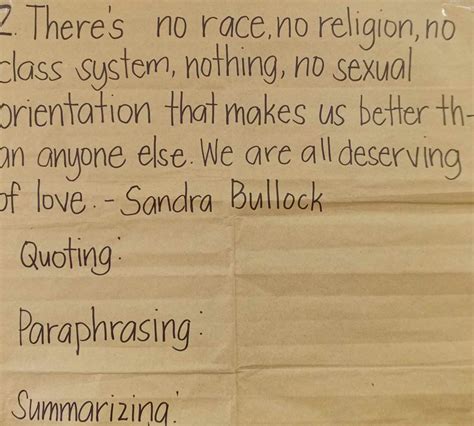 2. There's no race, no religion, no
class system, nothing, no sexual
orientation that makes us better th-
an anyone else. We are all deserving
of love. - Sandra Bullock
Quoting:
Paraphrasing:
Summarizing: